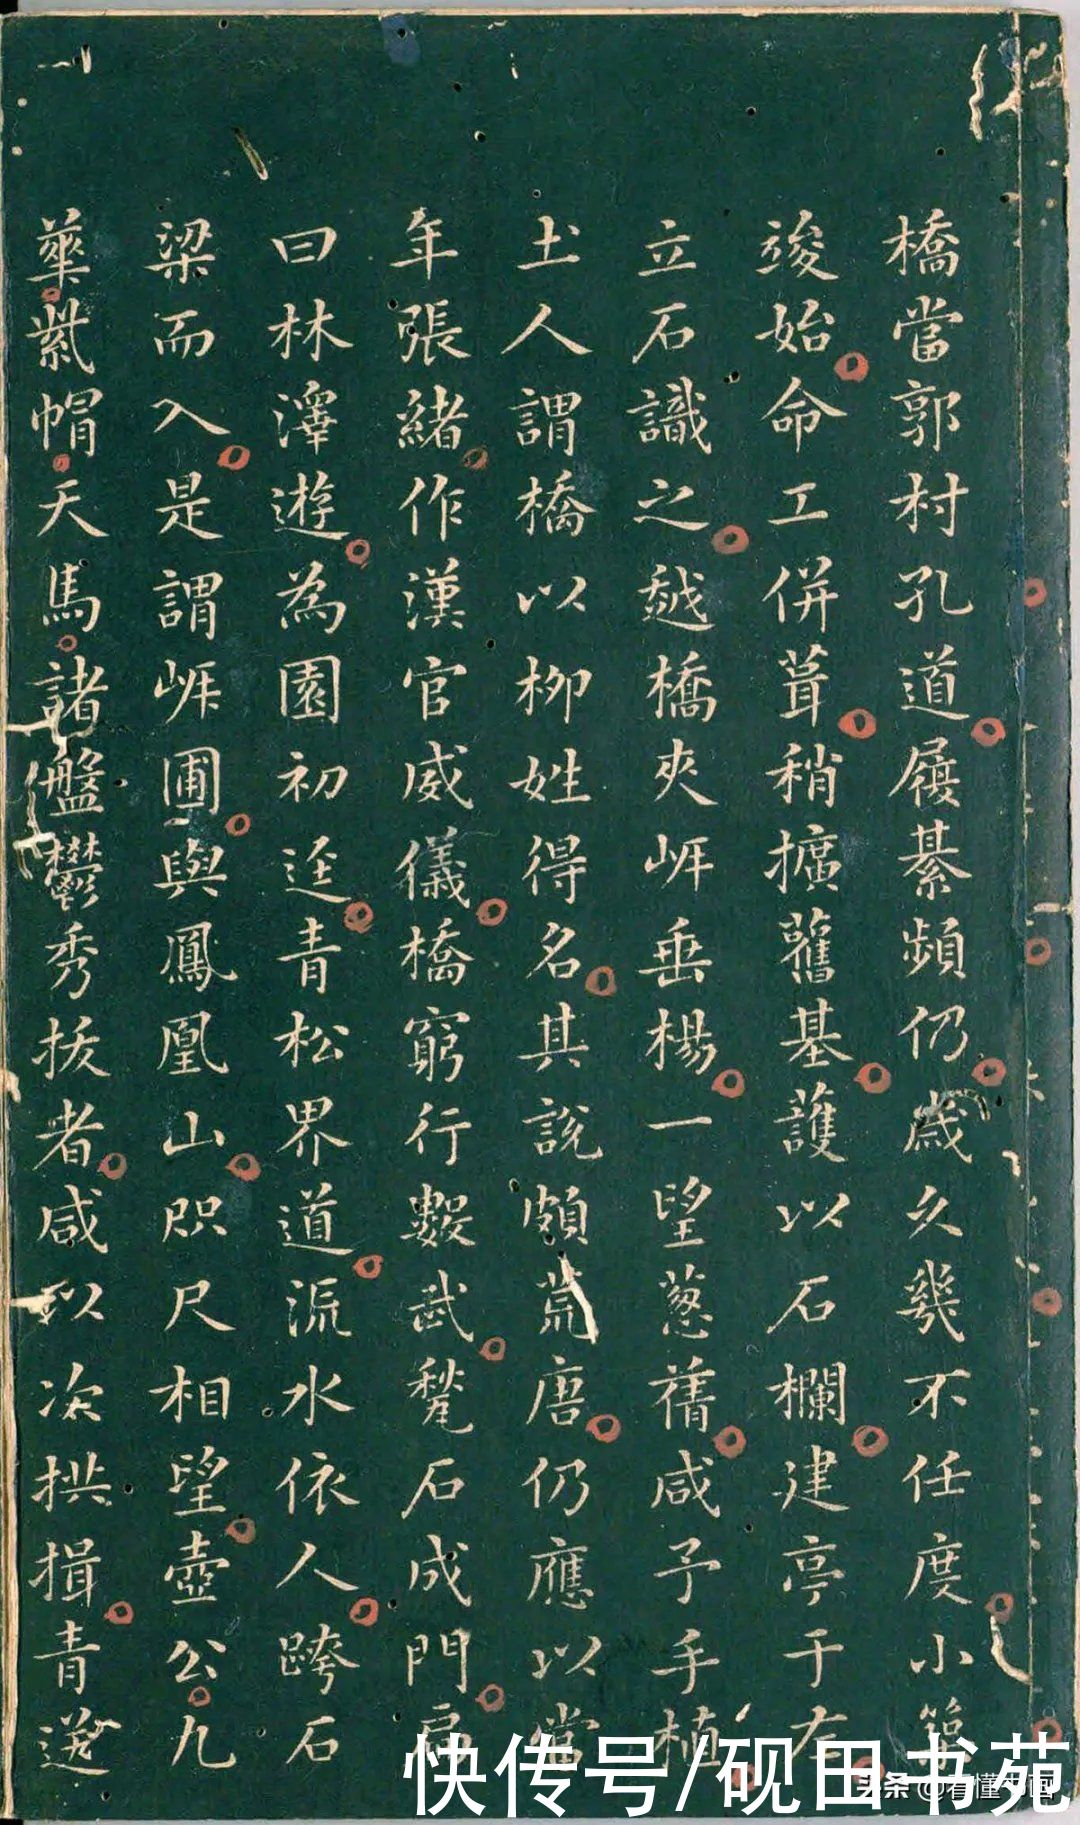 橋當郭村孔道屨綦頻仍歲久幾不任度小築
竣始命工併葺稍擴舊基護以石欄建亭于右
立石識之越橋夾岸垂楊一望蔥蒨咸予手植
土人謂橋以柳姓得名其說頗荒唐仍應以當
年張緒作漢官威儀橋窮行數武甃石成門扁
曰林澤遊為園初逕青松界道流水依人跨石
梁而入是謂圃與鳳凰山咫尺相望壺公九
華紫帽天馬諸盤鬱秀拔者咸以次拱揖青送
快传号/砚田书苑
头条 @看懂书画